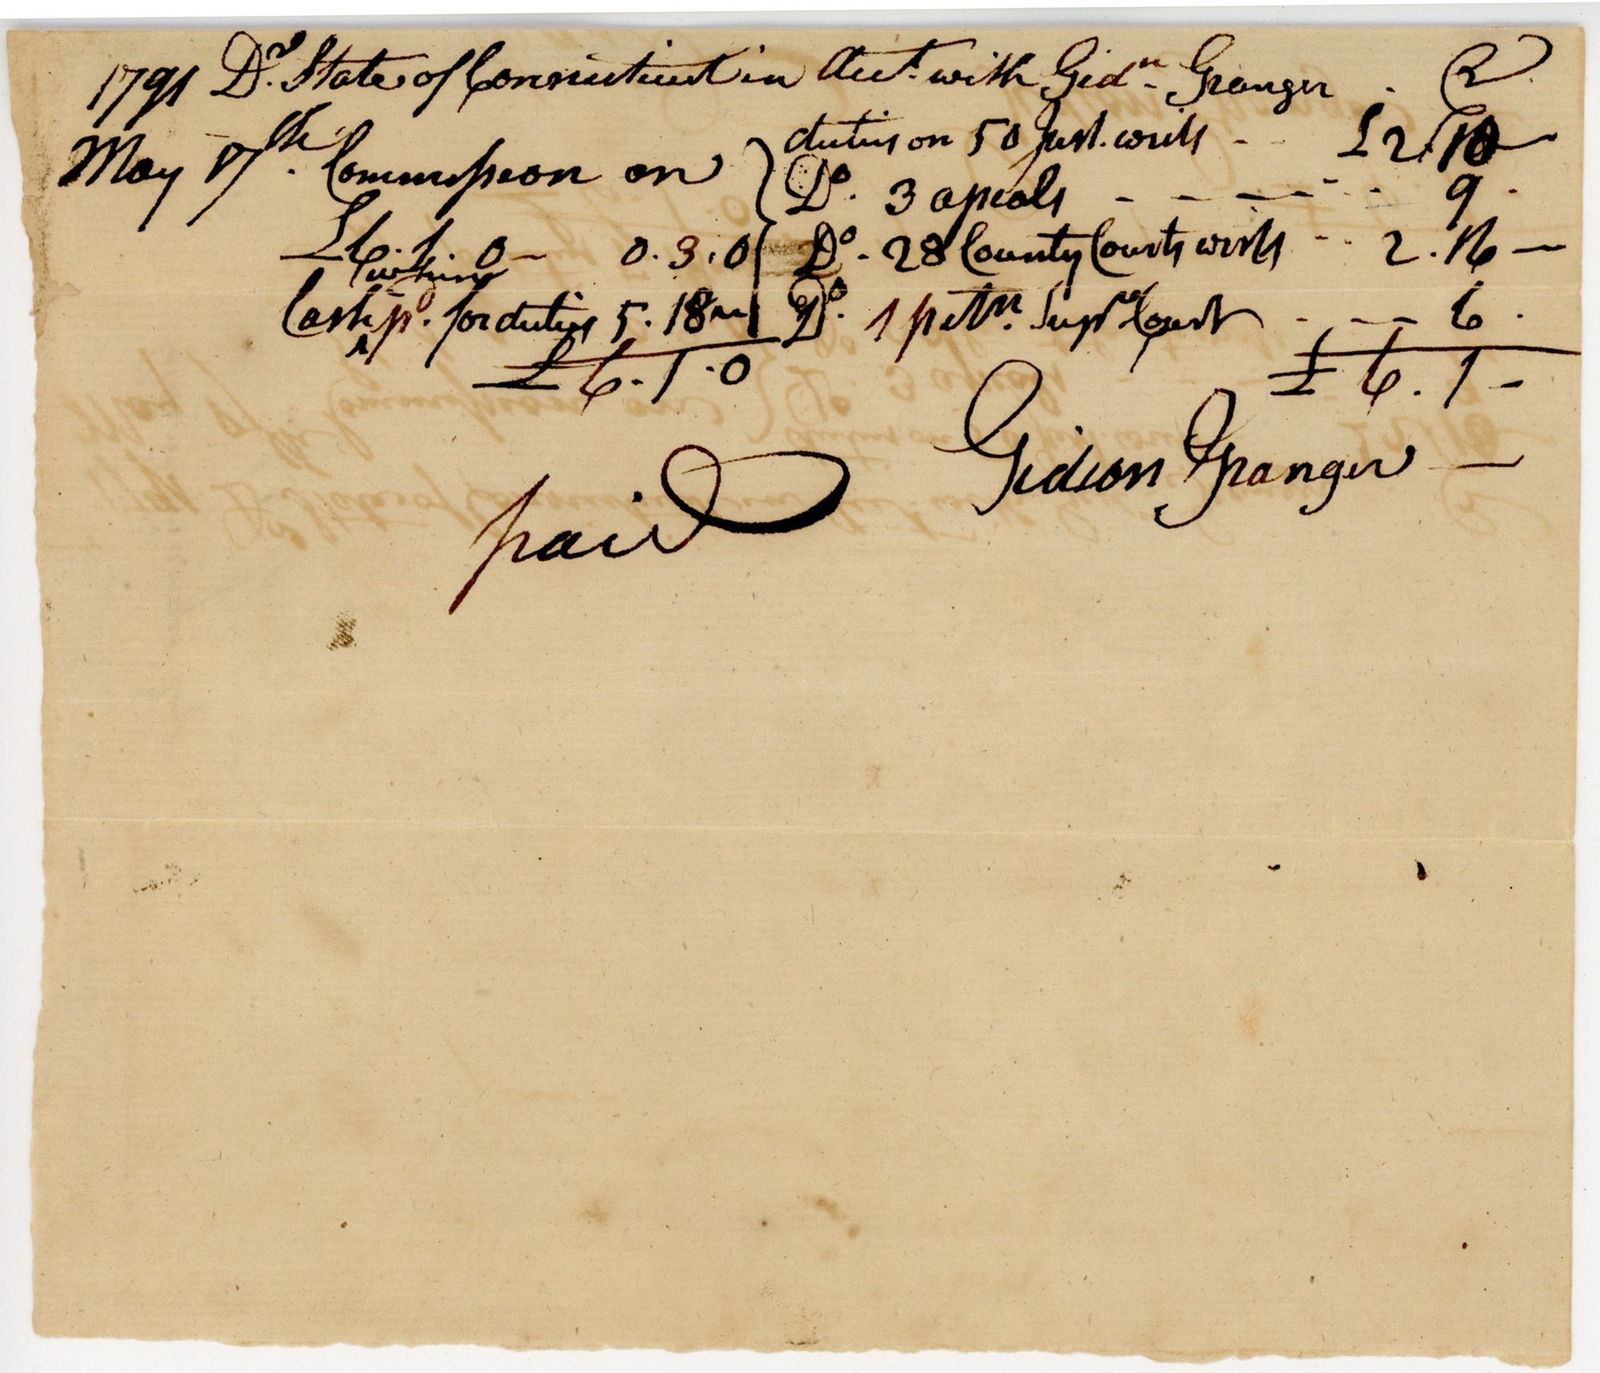 1791 Dr. State of Connecticut in Acct. with Gidn. Granger . Cr
May 17th. Commission on } duties on 50 Just. writs - - £2.10 —
Do. 3 apeals - - - - - - 9 .
£6.1.0 - 0.3.0 Do. 28 County Courts writs - - 2.16 —
Cash pd. for duties 5.18 Do. 1 petn. Supr. Court - - - 6 .
£6.1.0 £6.1 -
Gideon Granger —
paid